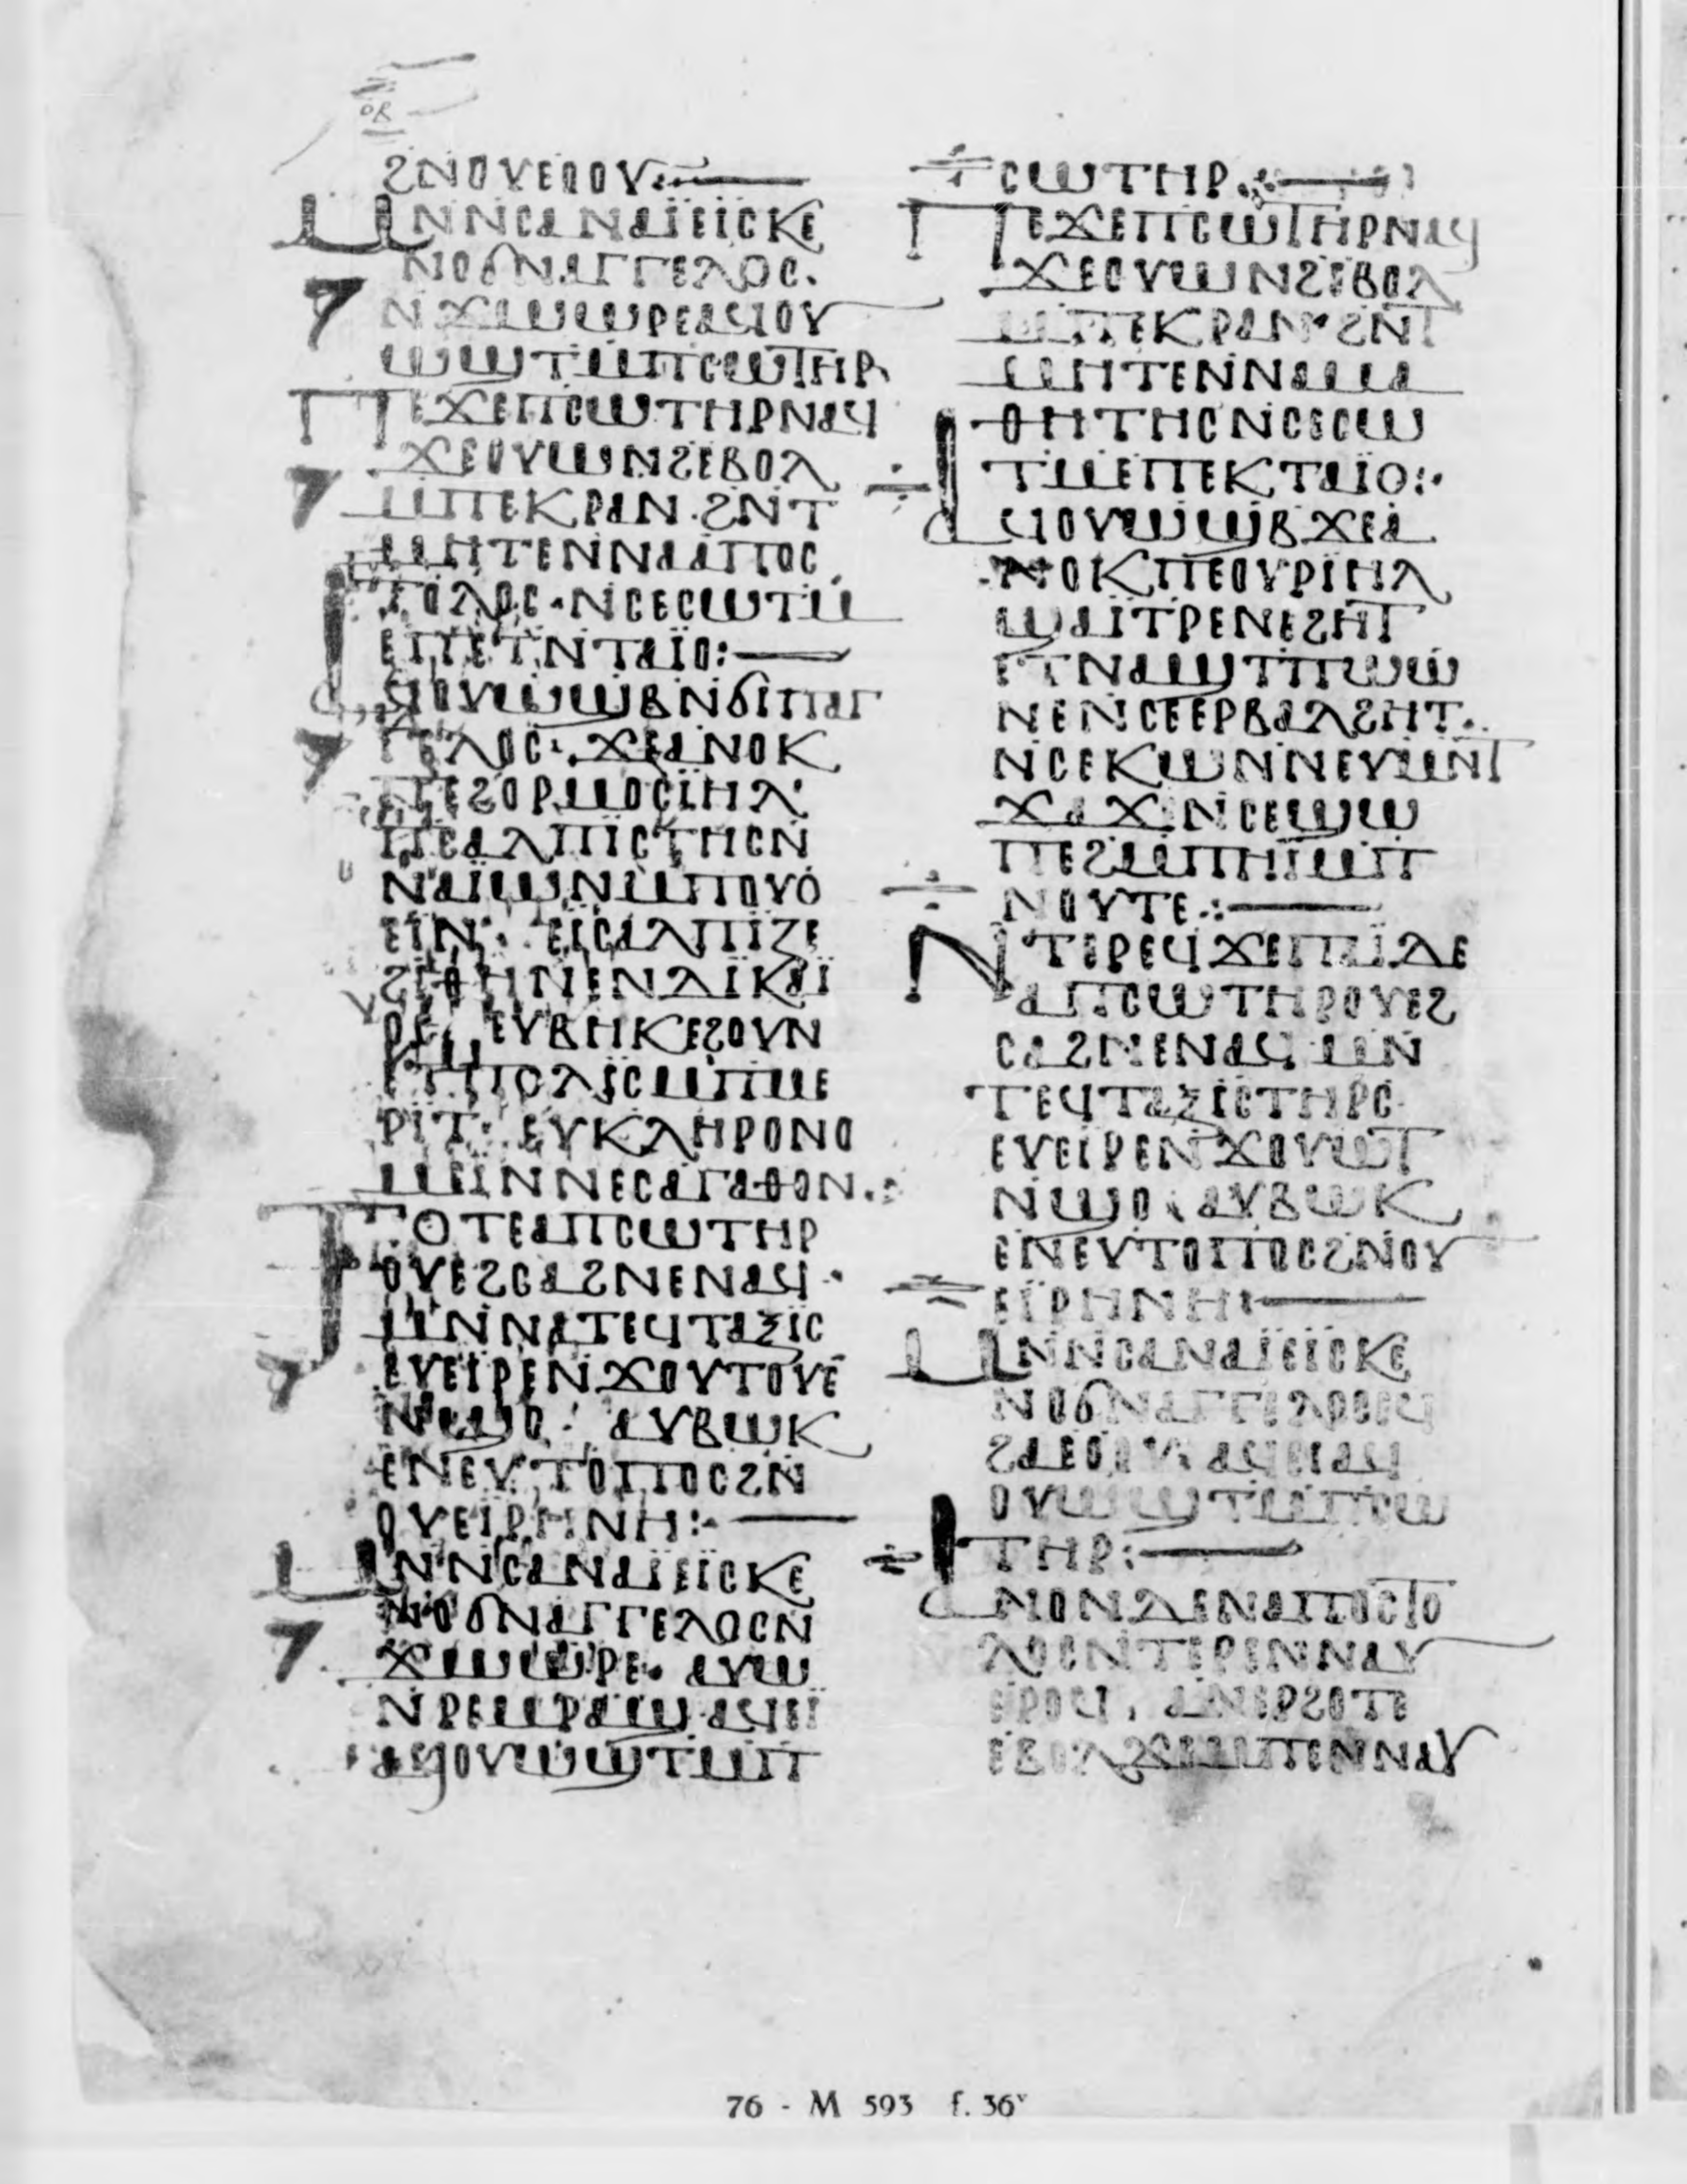 ϨΝΟΥΕΟΟΥ⁘—
ⲘⲚⲚⲤⲀⲚⲀⲒ̈ⲈⲒ̈ⲤⲔⲈ
ⲚⲞϬⲚⲀⲄⲄⲈⲖⲞⲤ.
ⲚϪⲰⲰⲢⲈⲀϤⲞⲨ
ⲰϢⲦⲘⲠⲤⲰⲦⲎⲢ
ⲠⲈϪⲈⲠⲤⲰⲦⲎⲢⲚⲀϤ
ϪⲈⲞⲨⲰⲚϨⲈⲂⲞⲖ
ⲘⲠⲈⲔⲢⲀⲚ·ϨⲚⲦ
ⲘⲎⲦⲈⲚⲚⲀⲀⲠⲞⲤ
ⲦⲞⲖⲞⲤ·ⲚⲤⲈⲤⲰⲦⲘ
ⲈⲠⲈⲦⲚⲦⲀⲒ̈Ⲟ:—
ⲀϤⲞⲨⲰϢⲂⲚϬⲒⲠⲀⲄ
ⲄⲈⲖⲞⲤ:ϪⲈⲀⲚⲞⲔ
ⲠⲈϨⲞⲢⲘⲞⲤⲒ̈ⲎⲖ
ⲠⲤⲀⲖⲠⲒⲤⲦⲎⲤⲚ
ⲚⲀⲒⲰⲚⲘⲠⲞⲨⲞ
ⲈⲒⲚ· ⲈⲒ̈ⲤⲀⲖⲠⲒⲌⲈ
ϨⲒⲐⲎⲚⲈⲚⲆⲒ̈ⲔⲀⲒ̈
ⲞⲤ, ⲈⲨⲂⲎⲔⲈϨⲞⲨⲚ
ⲈⲦⲠⲞⲖⲒⲤⲘⲠⲘⲈ
ⲢⲒⲦ: ⲈⲨⲔⲖⲎⲢⲞⲚⲞ
ⲘⲈⲒⲚⲚⲈⲤⲀⲄⲀⲐⲞⲚ.:
ⲦⲞⲦⲈⲀⲠⲤⲰⲦⲎⲢ
ⲞⲨⲈϨⲤⲀϨⲚⲈⲚⲀϤ·
ⲘⲚⲚⲀⲦⲈϤⲦⲀⲜⲒⲤ
ⲈⲨⲈⲒⲢⲈⲚϪⲞⲨⲦⲞⲨⲈ
ⲚϢⲞ· ⲀⲨⲂⲰⲔ
ⲈⲚⲈⲨⲦⲞⲠⲞⲤϨⲚ
ⲞⲨⲈⲒⲢⲎⲚⲎ:·—
ⲘⲚⲚⲤⲀⲚⲀⲒ̈ⲈⲒ̈ⲤⲔⲈ
ⲚⲞϬⲚⲀⲄⲄⲈⲖⲞⲤⲚ
ϪⲰⲰⲢⲈ· ⲀⲨⲰ
ⲚⲢⲈⲘⲢⲀϢ·ⲀϤⲈⲒ̈
ⲀϤⲞⲨⲰϢⲦⲘⲠ
ⲤⲰⲦⲎⲢ.:—
ⲠⲈϪⲈⲠⲤⲰⲦⲎⲢⲚⲀϤ
ϪⲈⲞⲨⲰⲚϨⲈⲂⲞⲖ
ⲘⲠⲈⲔⲢⲀⲚ·ϨⲚⲦ
ⲘⲎⲦⲈⲚⲚⲀⲘⲀ
ⲐⲎⲦⲎⲤⲚⲤⲈⲤⲰ
ⲦⲘⲈⲠⲈⲔⲦⲀⲒ̈Ⲟ:·
ⲀϤⲞⲨⲰϢⲂϪⲈⲀ
ⲚⲞⲔⲠⲈⲞⲨⲢⲒⲎⲖ
ϢⲀⲒ̈ⲦⲢⲈⲚⲈϨⲎⲦ
ⲈⲦⲚⲀϢⲦⲠⲰⲰ
ⲚⲈⲚⲤⲈⲈⲢⲂⲀⲖϨⲎⲦ.
ⲚⲤⲈⲔⲰⲚⲚⲈⲨⲘⲚⲦ
ϪⲀϪⲒⲚⲤⲈϢⲰ
ⲠⲈϨⲘⲠⲎⲒⲘⲠ
ⲚⲞⲨⲦⲈ.:—
ⲚⲦⲈⲢⲈϤϪⲈⲠⲀⲒ̈ⲆⲈ
ⲀⲠⲤⲰⲦⲎⲢⲞⲨⲈϨ
ⲤⲀϨⲚⲈⲚⲀϤ ⲘⲚ
ⲦⲈϤⲦⲀⲜⲒⲤⲦⲎⲢⲤ
ⲈⲨⲈⲒⲢⲈⲚϪⲞⲨⲰⲦ
ⲚϢⲞ· ⲀⲨⲂⲰⲔ
ⲈⲚⲈⲨⲦⲞⲠⲞⲤϨⲚⲞⲨ
ⲈⲒ̈ⲢⲎⲚⲎ:—
ⲘⲚⲚⲤⲀⲚⲀⲒ̈ⲈⲒ̈ⲤⲔⲈ
ⲚⲞϬⲚⲀⲄⲄⲈⲖⲞⲤⲈϤ
ϨⲀⲈⲞⲞⲨ ⲀϤⲈⲒⲀϤ
ⲞⲨⲰϢⲦⲘⲠⲤⲰ
ⲦⲎⲢ:—
ⲀⲚⲞⲚⲆⲈⲚⲀⲠⲞⲤⲦⲞ
ⲖⲞⲤⲚⲦⲈⲢⲈⲚⲚⲀⲨ
ⲈⲢⲞϤ, ⲀⲚⲈⲢϨⲞⲦⲈ
ⲈⲂⲞⲖϪⲈⲘⲠⲈⲚⲚⲀⲨ
76 - M 593 f. 36ᵛ